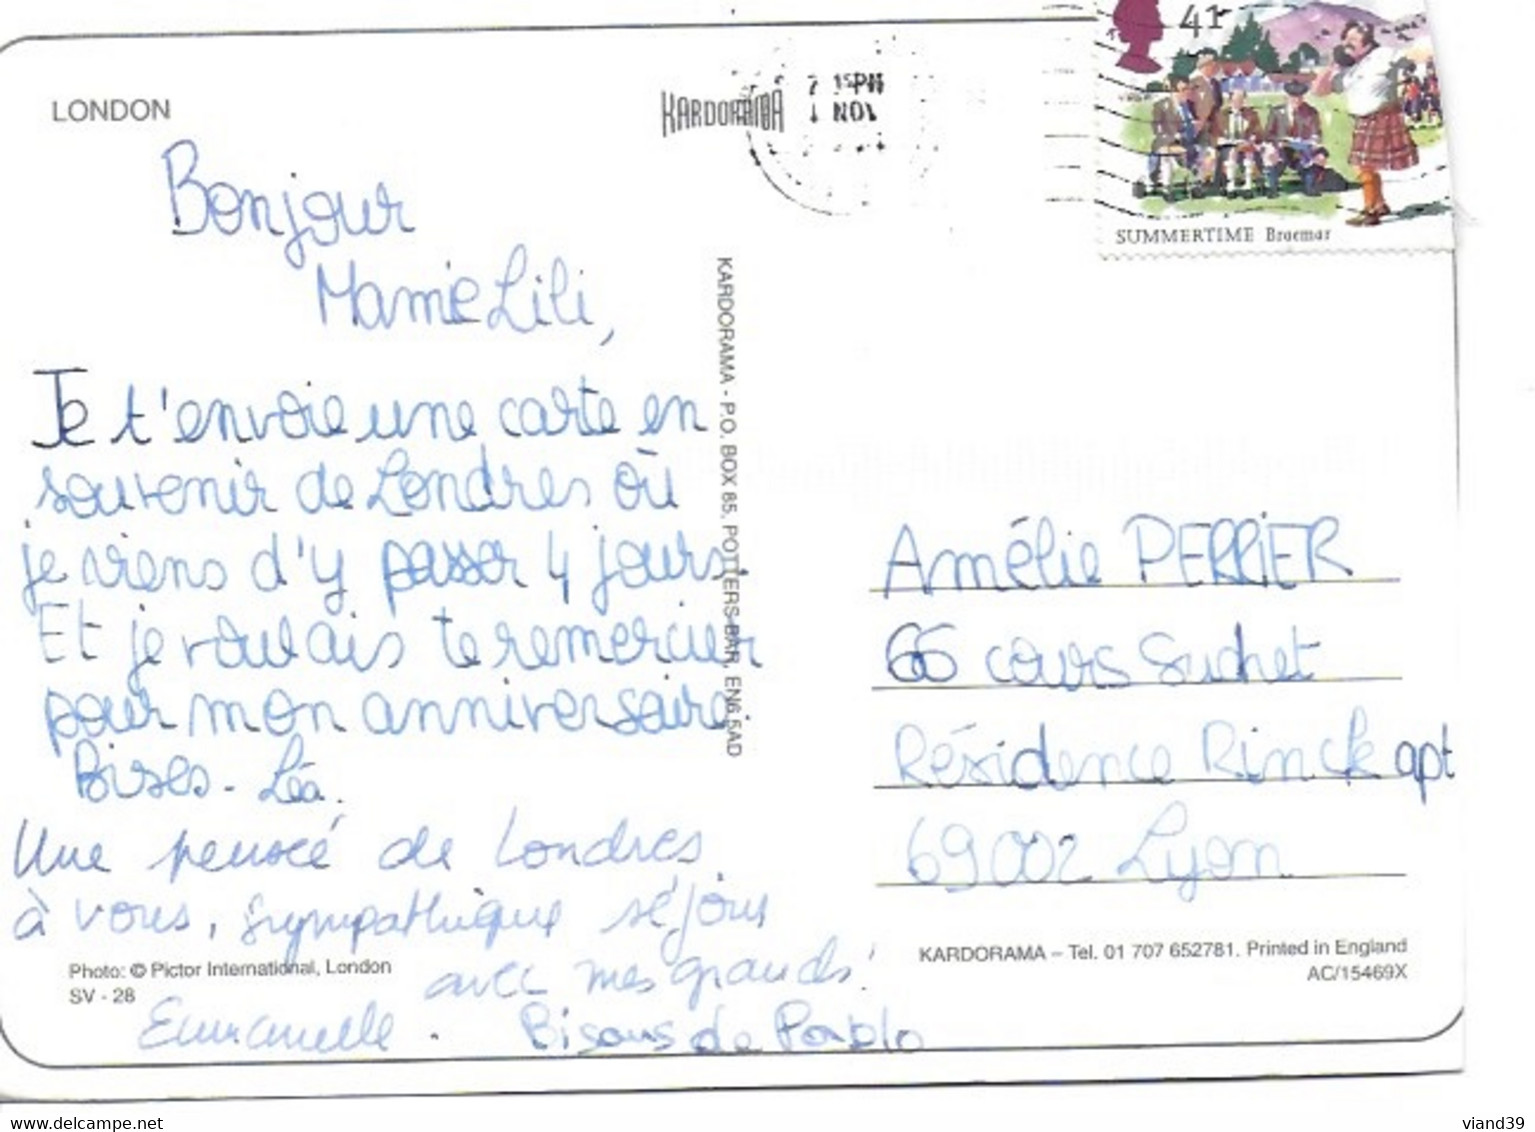 LONDON
KARDORAMA
7 15PM
1 NOV
41
SUMMERTIME Braemar
Bonjour
Mamie Lili,
Je t'envoie une carte en
souvenir de Londres où
je viens d'y passer 4 jours.
Et je voulais te remercier
pour mon anniversaire.
Bises. Léa.
Une pensée de Londres
à vous, sympathique séjour
avec mes grands!
Emmanuelle. Bisous de Pablo
Photo: © Pictor International, London
SV - 28
KARDORAMA - P.O. BOX 85, POTTERS BAR, EN6 5AD
Amélie PERRIER
66 cours Suchet
Résidence Rinck apt
69002 Lyon
KARDORAMA – Tel. 01 707 652781. Printed in England
AC/15469X
www.delcampe.net
viand39